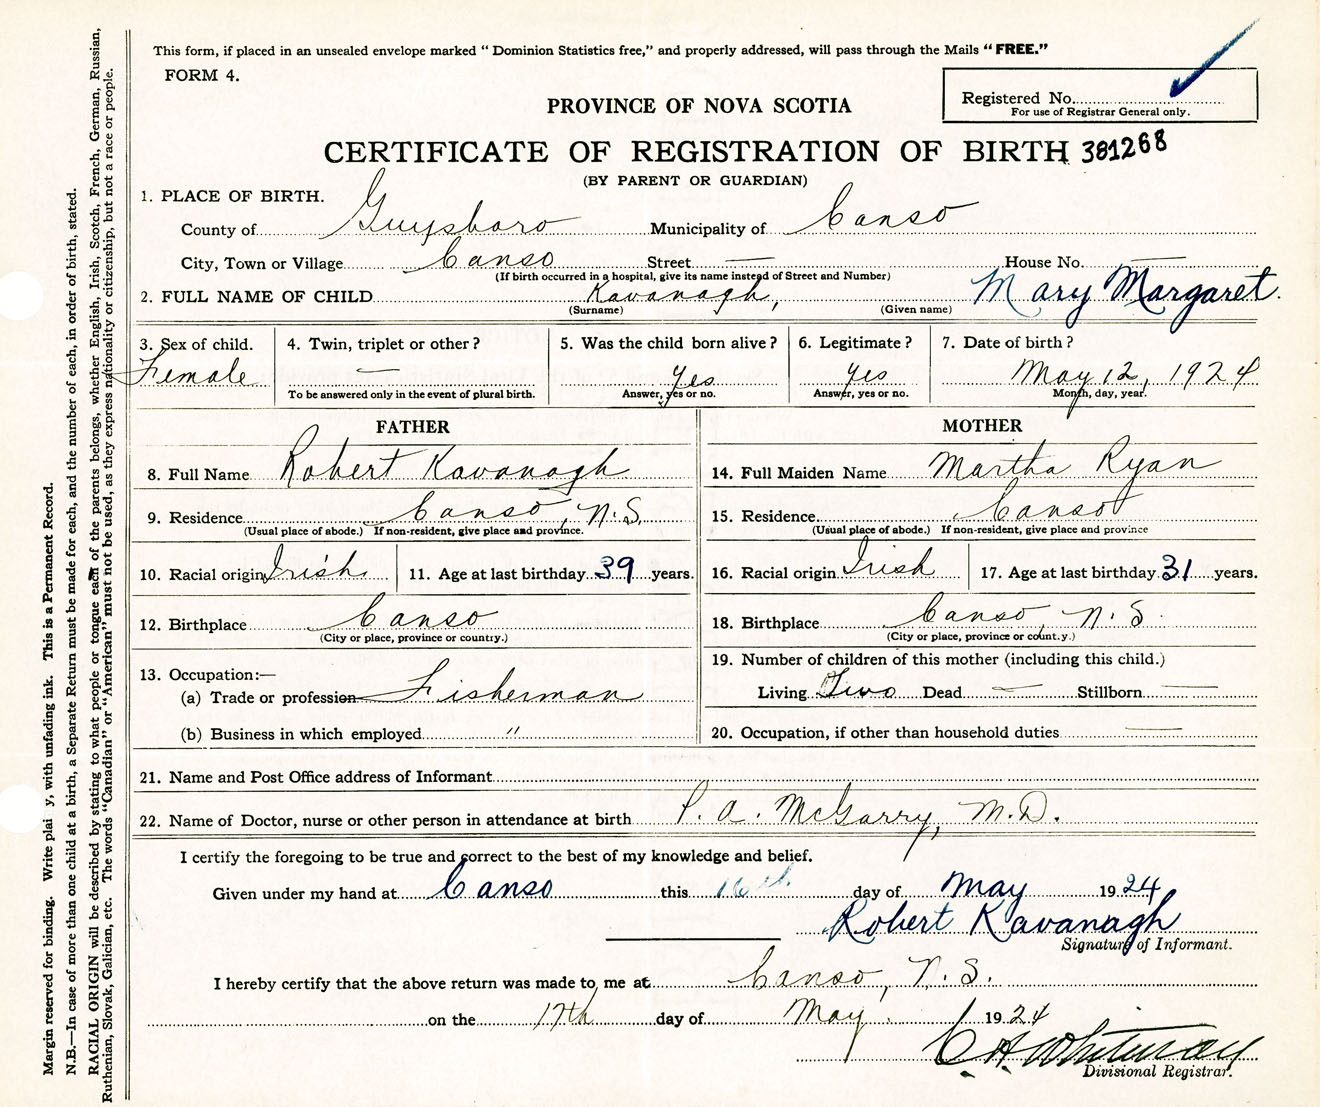 This form, if placed in an unsealed envelope marked “ Dominion Statistics free,” and properly addressed, will pass through the Mails “ FREE.”
FORM 4.
Registered No.
For use of Registrar General only.
PROVINCE OF NOVA SCOTIA
CERTIFICATE OF REGISTRATION OF BIRTH 381268
(BY PARENT OR GUARDIAN)
1. PLACE OF BIRTH.
County of Guysboro Municipality of Canso
City, Town or Village Canso Street — House No. —
(If birth occurred in a hospital, give its name instead of Street and Number)
2. FULL NAME OF CHILD Kavanagh, Mary Margaret.
(Surname) (Given name)
3. Sex of child. 4. Twin, triplet or other ? 5. Was the child born alive ? 6. Legitimate ? 7. Date of birth ?
Female — Yes Yes May 12, 1924
To be answered only in the event of plural birth. Answer, yes or no. Answer, yes or no. Month, day, year.
FATHER
8. Full Name Robert Kavanagh
9. Residence Canso, N.S.
(Usual place of abode.) If non-resident, give place and province.
10. Racial origin Irish 11. Age at last birthday 39 years.
12. Birthplace Canso
(City or place, province or country.)
13. Occupation:—
(a) Trade or profession Fisherman
(b) Business in which employed "
MOTHER
14. Full Maiden Name Martha Ryan
15. Residence Canso
(Usual place of abode.) If non-resident, give place and province
16. Racial origin Irish 17. Age at last birthday 31 years.
18. Birthplace Canso, N.S.
(City or place, province or count.y.)
19. Number of children of this mother (including this child.)
Living Two Dead — Stillborn —
20. Occupation, if other than household duties —
21. Name and Post Office address of Informant
22. Name of Doctor, nurse or other person in attendance at birth P. A. McGarry, M.D.
I certify the foregoing to be true and correct to the best of my knowledge and belief.
Given under my hand at Canso this 16th day of May 1924
Robert Kavanagh
Signature of Informant.
I hereby certify that the above return was made to me at Canso, N.S.
on the 17th day of May 1924
Divisional Registrar.
Margin reserved for binding. Write plai y, with unfading ink. This is a Permanent Record.
N.B.—In case of more than one child at a birth, a Separate Return must be made for each, and the number of each, in order of birth, stated.
RACIAL ORIGIN will be described by stating to what people or tongue each of the parents belongs, whether English, Irish, Scotch, French, German, Russian,
Ruthenian, Slovak, Galician, etc. The words “Canadian” or “American” must not be used, as they express nationality or citizenship, but not a race or people.